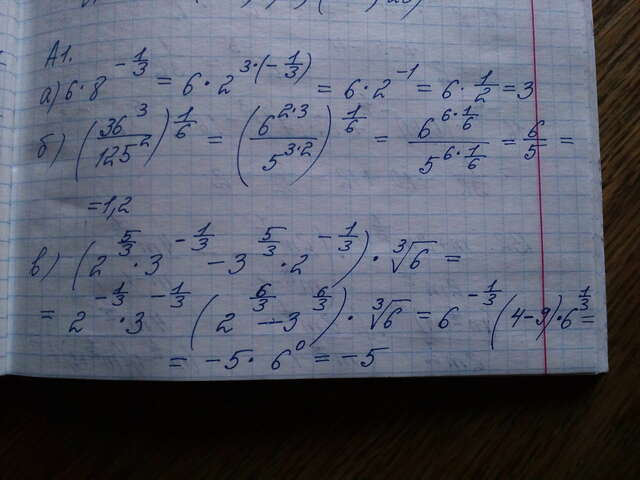 А1.
а) 6·8^(-1/3) = 6·2^(3·(-1/3)) = 6·2^(-1) = 6·1/2 = 3
б) (36^3/125^2)^(1/6) = (6^(2·3)/5^(3·2))^(1/6) = 6^(6·1/6)/5^(6·1/6) = 6/5 =
= 1,2
в) (2^(5/3)·3^(-1/3) - 3^(5/3)·2^(-1/3))·∛6 =
= 2^(-1/3)·3^(-1/3) (2^(6/3) - 3^(6/3))·∛6 = 6^(-1/3)(4-9)·6^(1/3) =
= -5·6^0 = -5